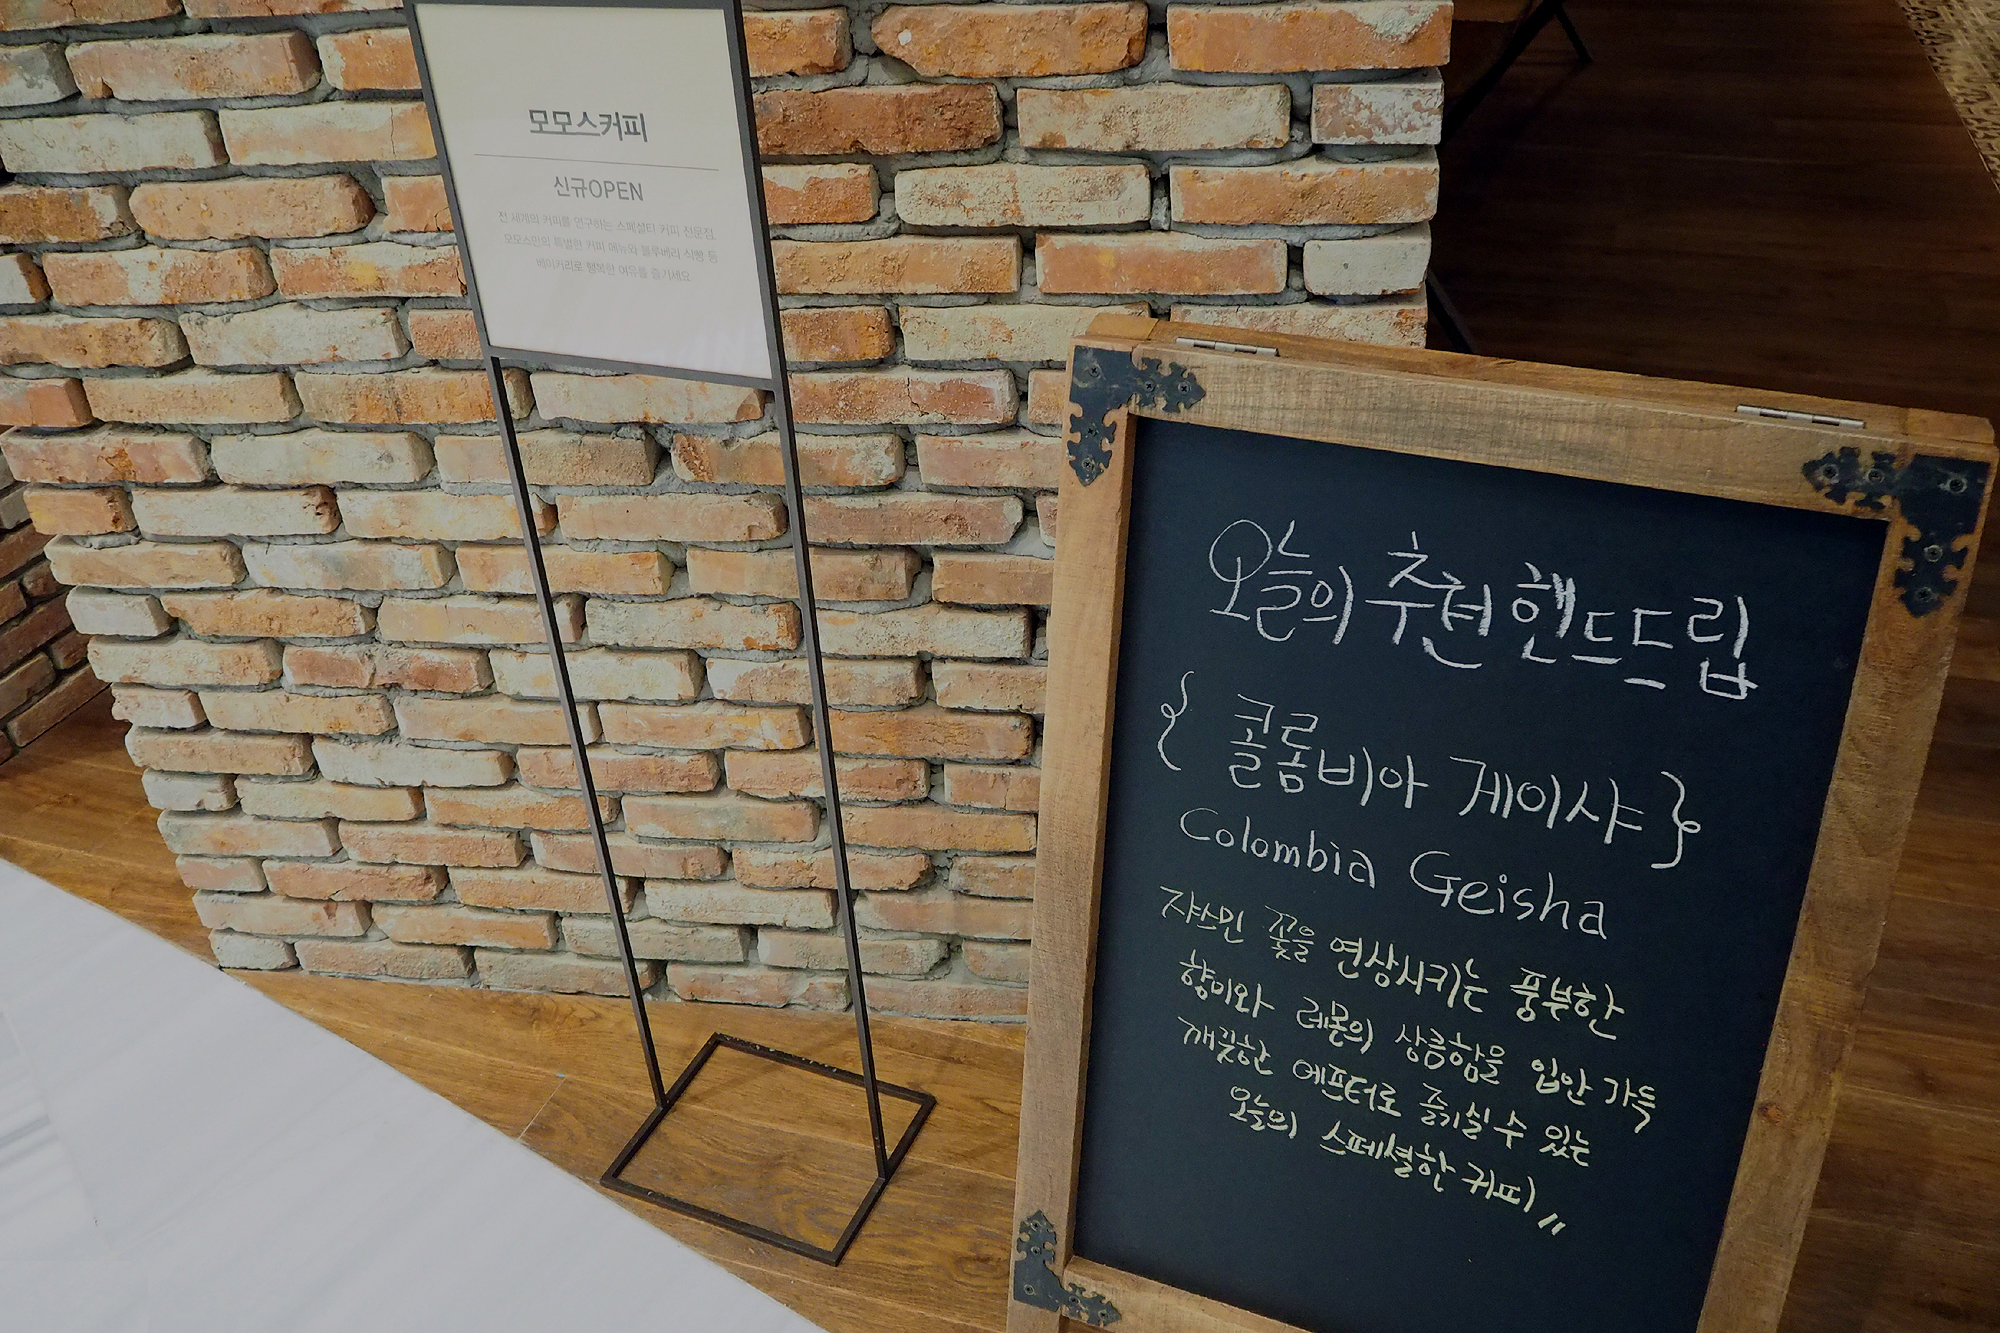 모모스커피
신규OPEN
전 세계의 커피를 연구하는 스페셜티 커피 전문점.
모모스만의 특별한 커피 메뉴와 블루베리 식빵 등
베이커리로 행복한 여유를 즐기세요
오늘의 추천 핸드드립
{ 콜롬비아 게이샤 }
Colombia Geisha
쟈스민 꽃을 연상시키는 풍부한
향미와 레몬의 상큼함을 입안 가득
깨끗한 에프터로 즐기실 수 있는
오늘의 스페셜한 커피 〃